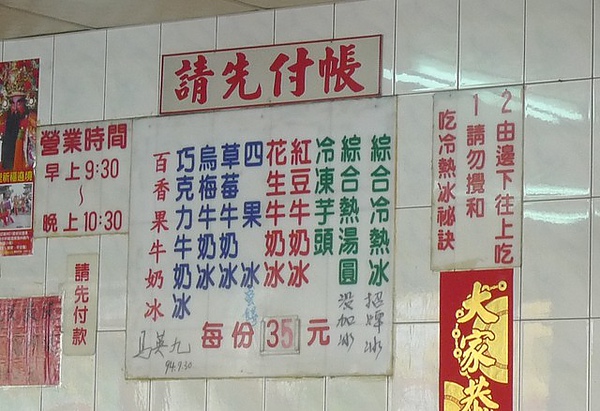 請先付帳
營業時間
早上9:30
～
晚上10:30
請先付款
綜合冷熱冰
綜合熱湯圓
冷凍芋頭
紅豆牛奶冰
花生牛奶冰
四果冰
草莓牛奶冰
烏梅牛奶冰
巧克力牛奶冰
百香果牛奶冰
每份35元
馬英九
94.9.30
沒加冰
吃冷熱冰祕訣
1請勿攪和
2由邊下往上吃
大家恭